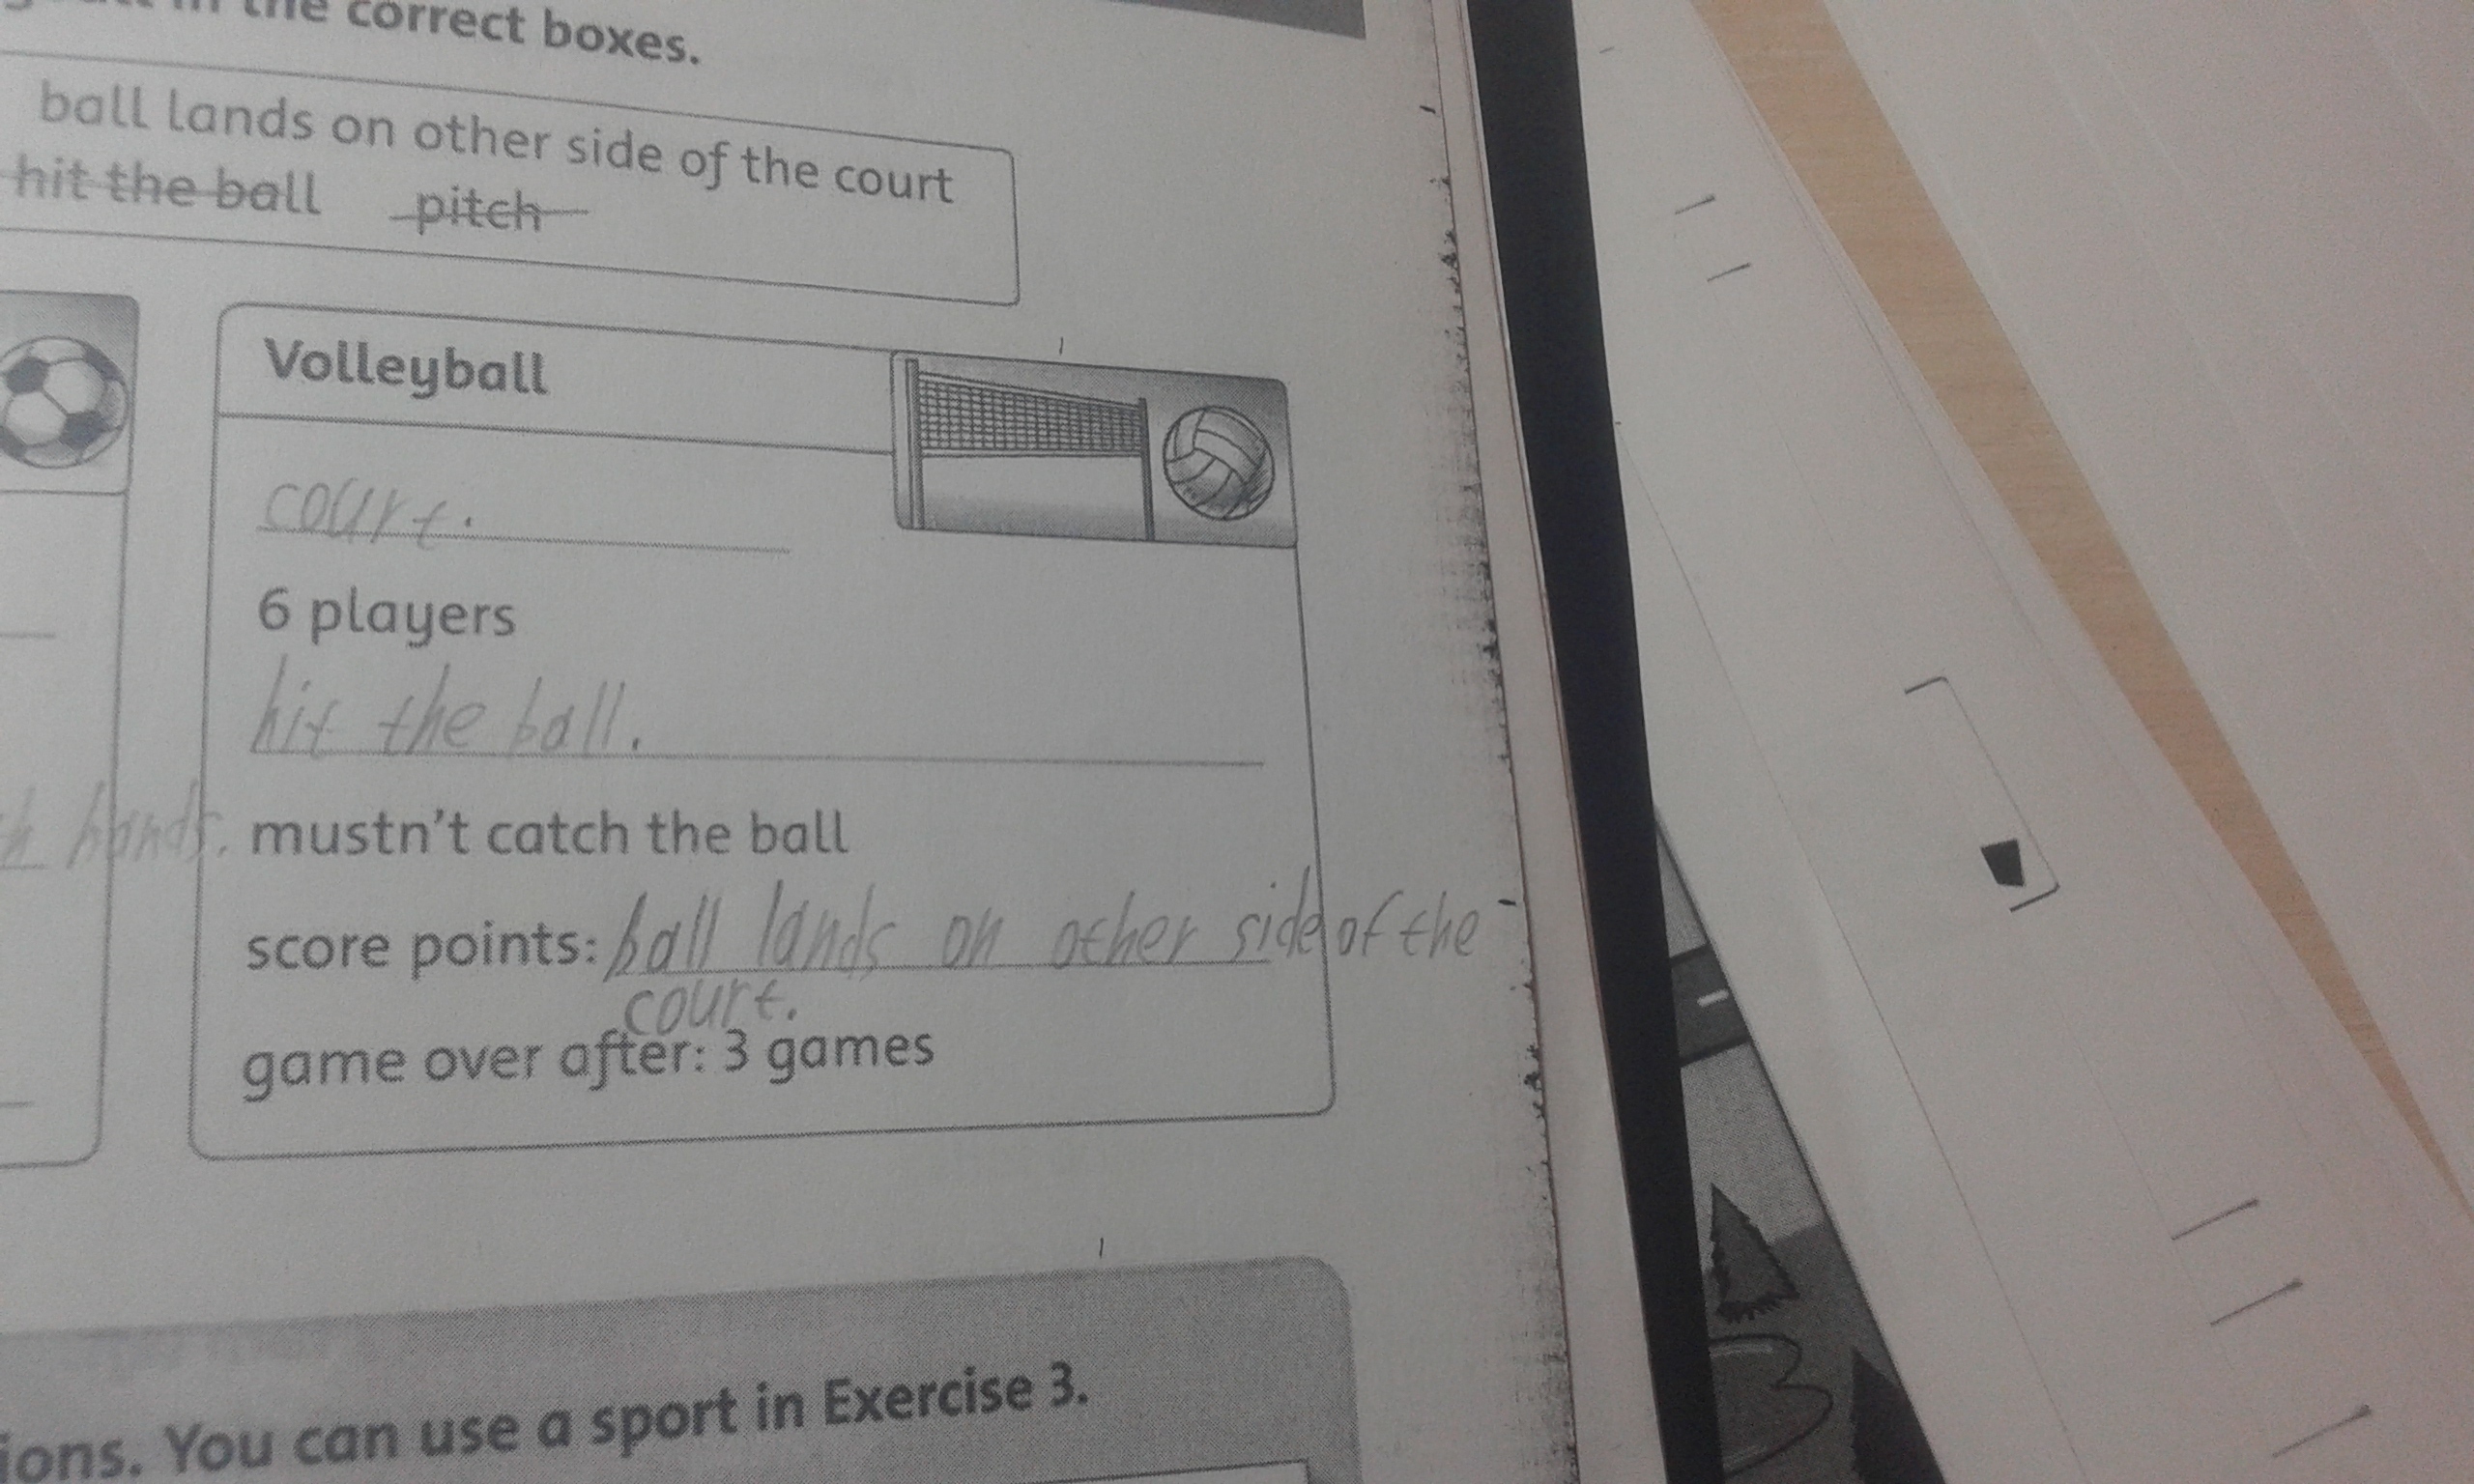 in the correct boxes.
ball lands on other side of the court
hit the ball pitch
Volleyball
court.
6 players
hit the ball.
hands. mustn't catch the ball
score points: ball lands on other side of the
court.
game over after: 3 games
ions. You can use a sport in Exercise 3.